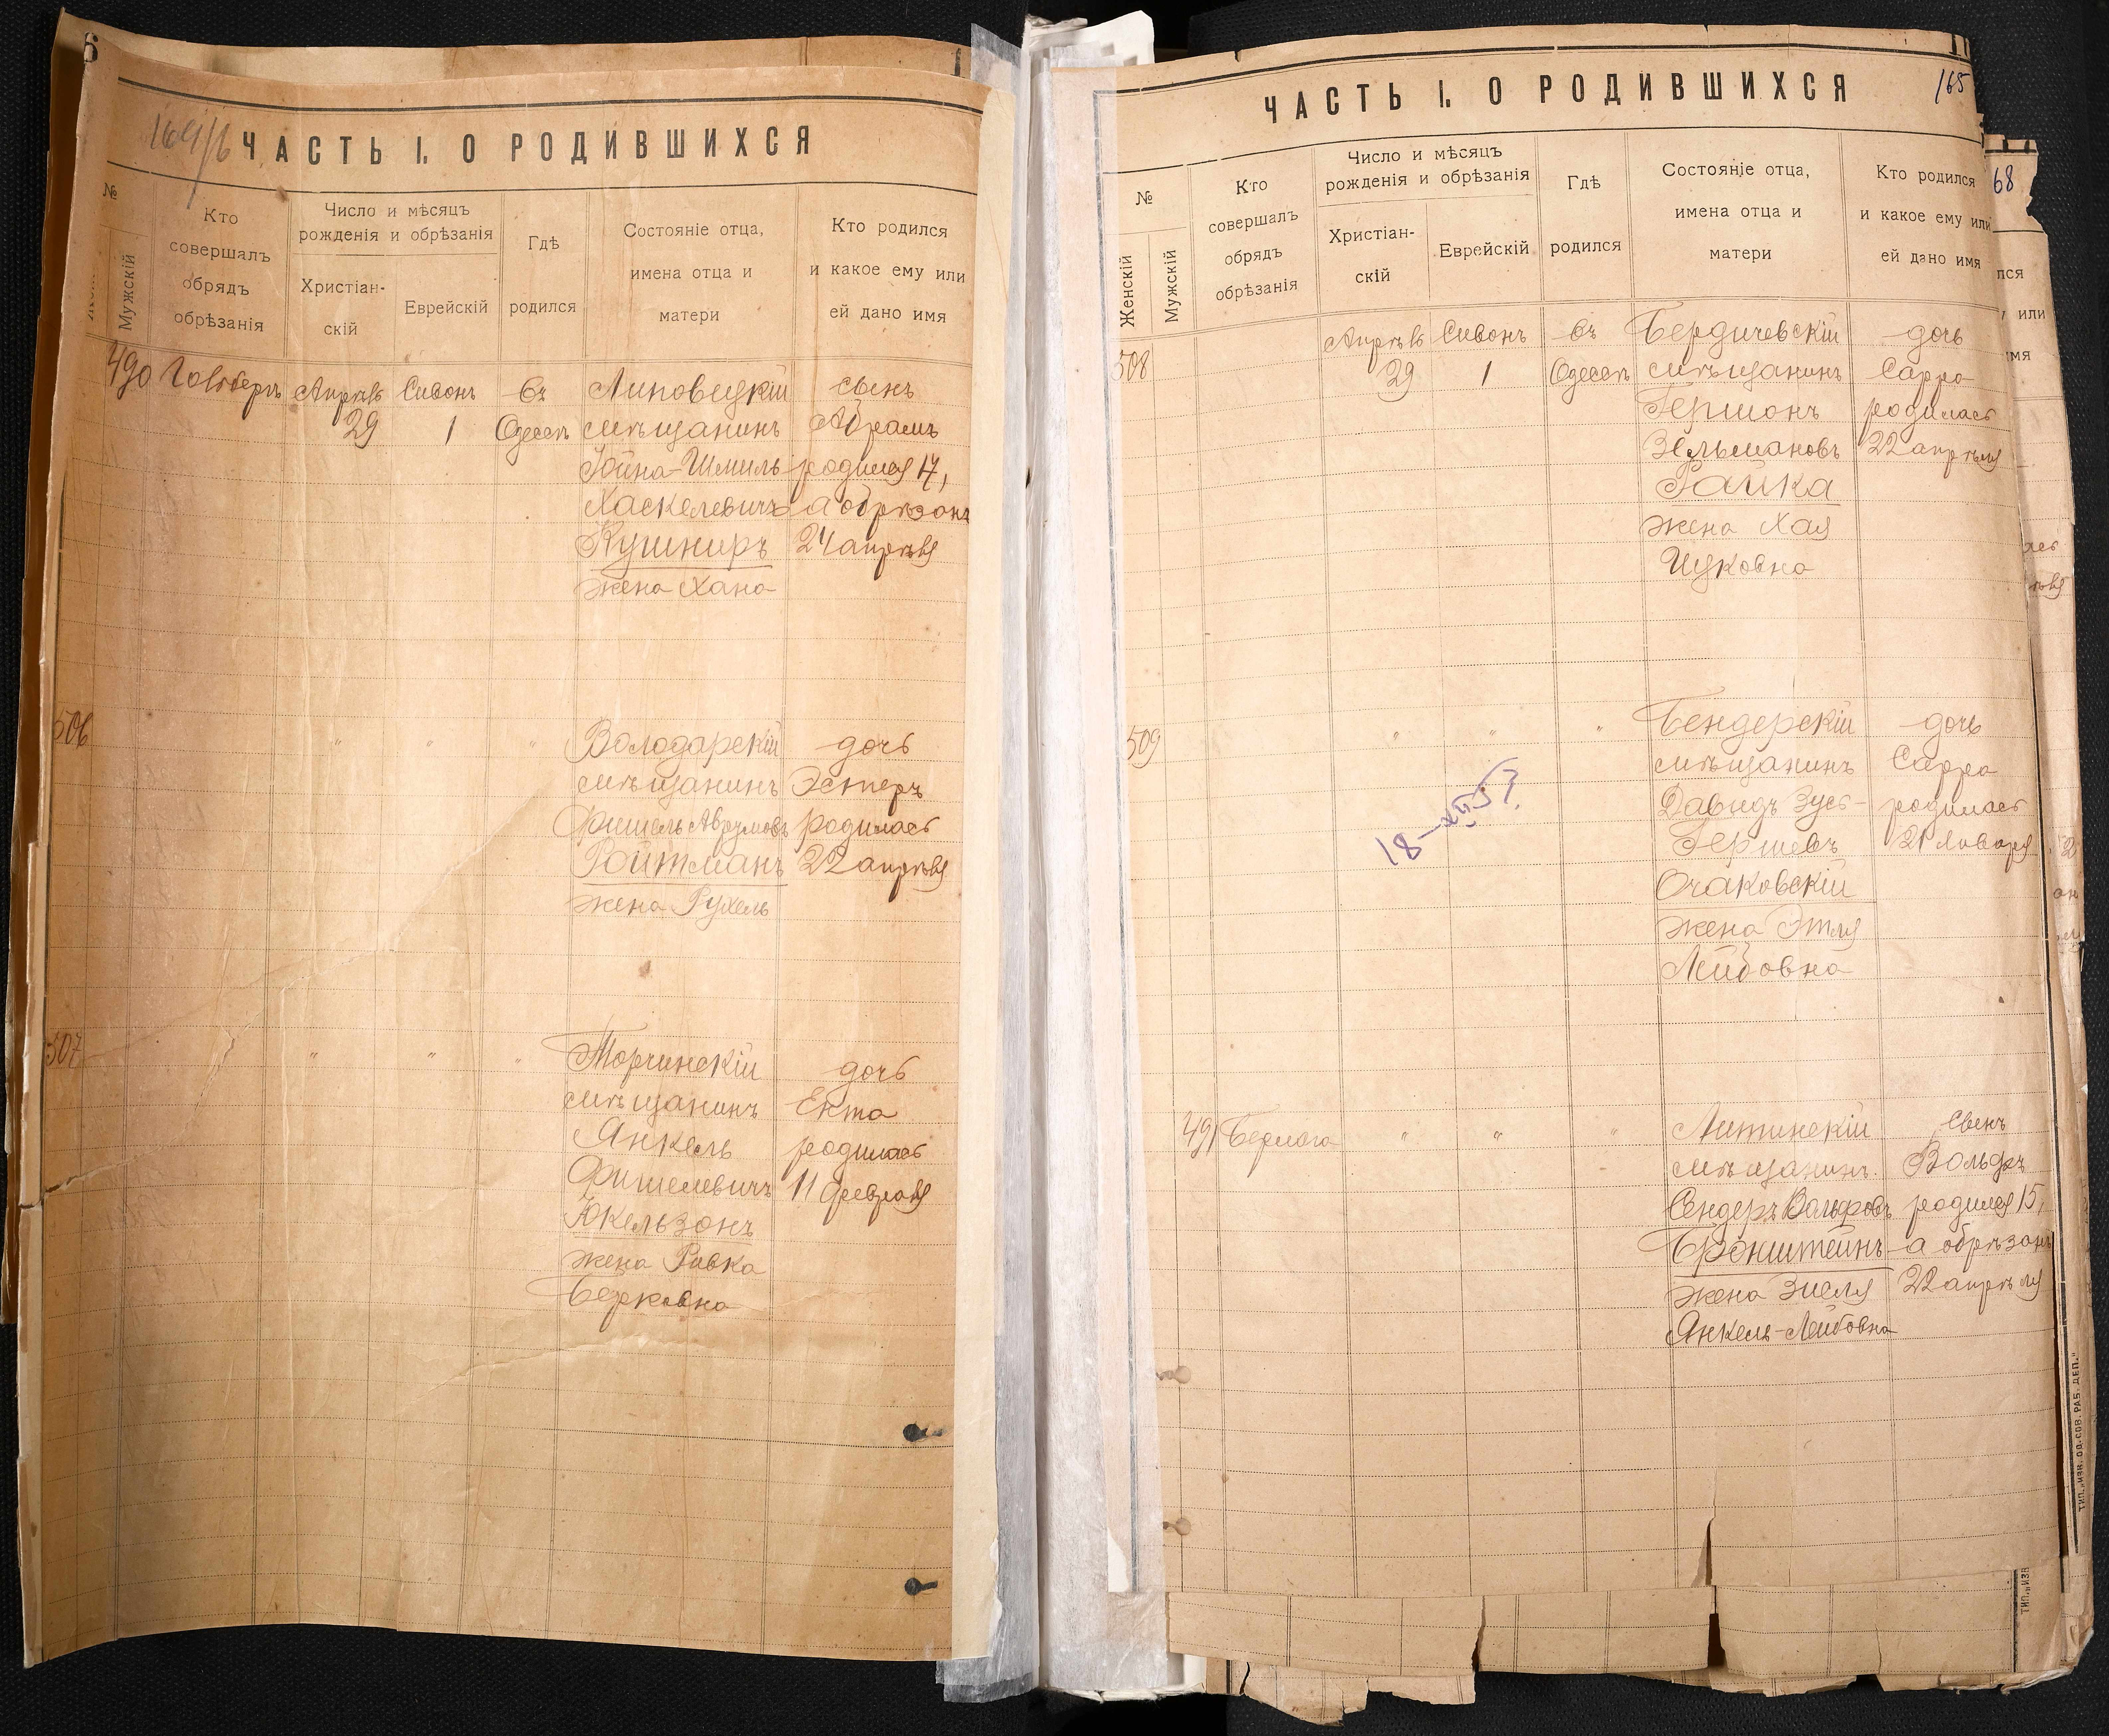 6
164/б
ЧАСТЬ I. О РОДИВШИХСЯ
№
Мужскій
Кто
совершалъ
обрядъ
обрѣзанія
Число и мѣсяцъ
рожденія и обрѣзанія
Христіан-
скій
Еврейскій
Гдѣ
родился
Состояніе отца,
имена отца и
матери
Кто родился
и какое ему или
ей дано имя
490
Апрѣль
29
Сивонъ
1
въ
Одессѣ
Липовецкій
мѣщанинъ
Іойна-Шмиль
Хаскелевичъ
Кушниръ
жена Хана
сынъ
Абрамъ
родился 17,
а обрѣзанъ
24 апрѣля
506
"
"
"
Володарскій
мѣщанинъ
Фишель Аврумовъ
Ройтманъ
жена Рухель
дочь
Эстеръ
родилась
22 апрѣля
507
"
"
"
Торчинскій
мѣщанинъ
Янкель
Фишелевичъ
Юкельзонъ
жена Ривка
Берковна
дочь
Ента
родилась
11 февраля
165
ЧАСТЬ I. О РОДИВШИХСЯ
№
Женскій
Мужскій
Кто
совершалъ
обрядъ
обрѣзанія
Число и мѣсяцъ
рожденія и обрѣзанія
Христіан-
скій
Еврейскій
Гдѣ
родился
Состояніе отца,
имена отца и
матери
Кто родился
и какое ему или
ей дано имя
508
Апрѣль
29
Сивонъ
1
въ
Одессѣ
Бердичевскій
мѣщанинъ
Гершонъ
Зельмановъ
Гайка
жена Хая
Ицковна
дочь
Сарра
родилась
22 апрѣля
509
"
"
"
Бендерскій
мѣщанинъ
Давидъ Зусь-
Гершевъ
Очаковскій
жена Этля
Лейбовна
дочь
Сарра
родилась
21 Января
491
Берлога
"
"
"
Литинскій
мѣщанинъ
Сендеръ Вольфовъ
Бронштейнъ
жена Зиселя
Янкель-Лейбовна
сынъ
Вольфъ
родился 15,
а обрѣзанъ
22 апрѣля
68
ТИП. „ИЗВ. ОД. СОВ. РАБ. ДЕП."